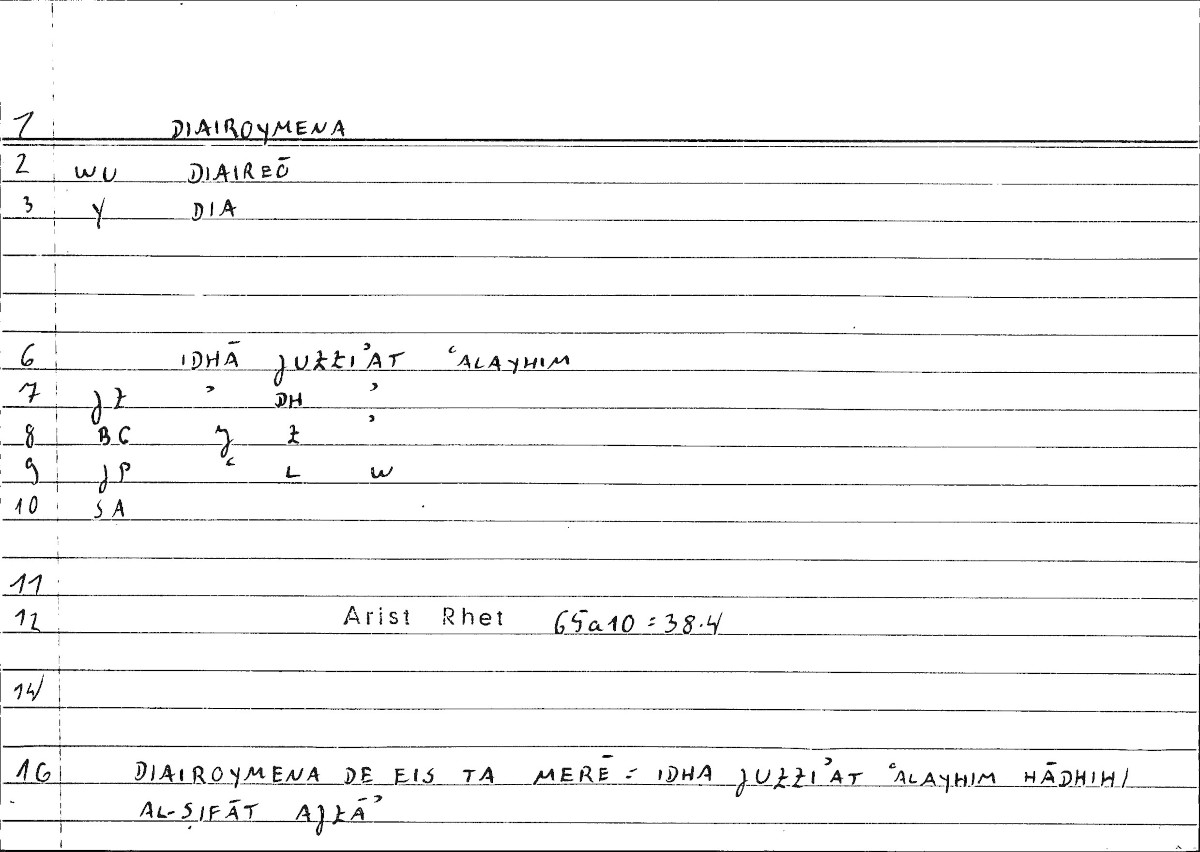 1 DIAIROYMENA
2 WU DIAIREŌ
3 Y DIA
6 IDHĀ JUZZI’AT ‘ALAYHIM
7 JZ ’ DH ’
8 BC J Z ’
9 JP ‘ L W
10 SA
11
12 Arist Rhet 65a10 = 38.4
14
16 DIAIROYMENA DE EIS TA MERĒ = IDHA JUZZI’AT ‘ALAYHIM HĀDHIHI
AL-ṢIFĀT AJZĀ’